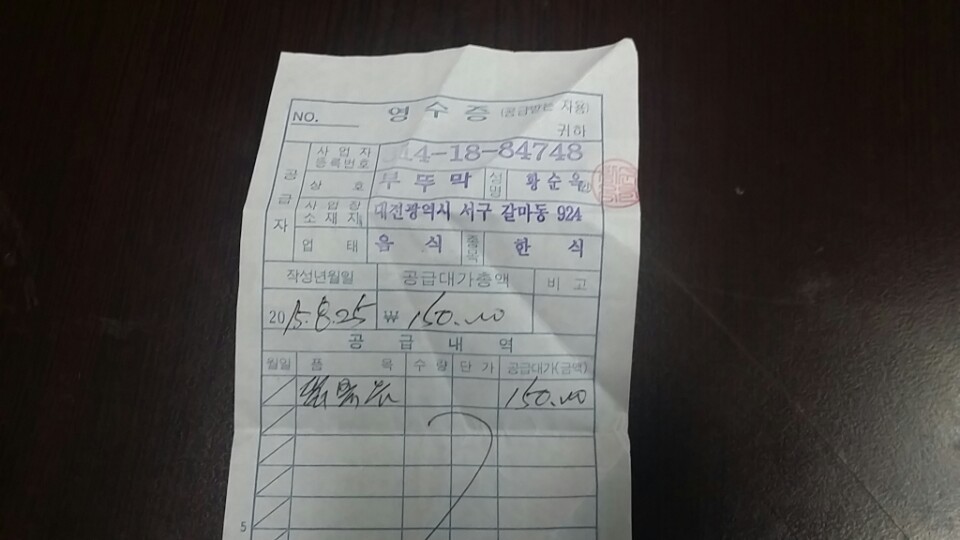 NO. 영 수 증 (공급받는 자용)
귀하
공급자
사업자등록번호 314-18-84748
상 호 부 뚜 막 성명 황순옥 ㊞
사업장소재지 대전광역시 서구 갈마동 924
업 태 음 식 종목 한 식
작성년월일 공급대가총액 비 고
2015.8.25 ₩ 150.00
공 급 내 역
월일 품 목 수 량 단 가 공급대가(금액)
150.00
5